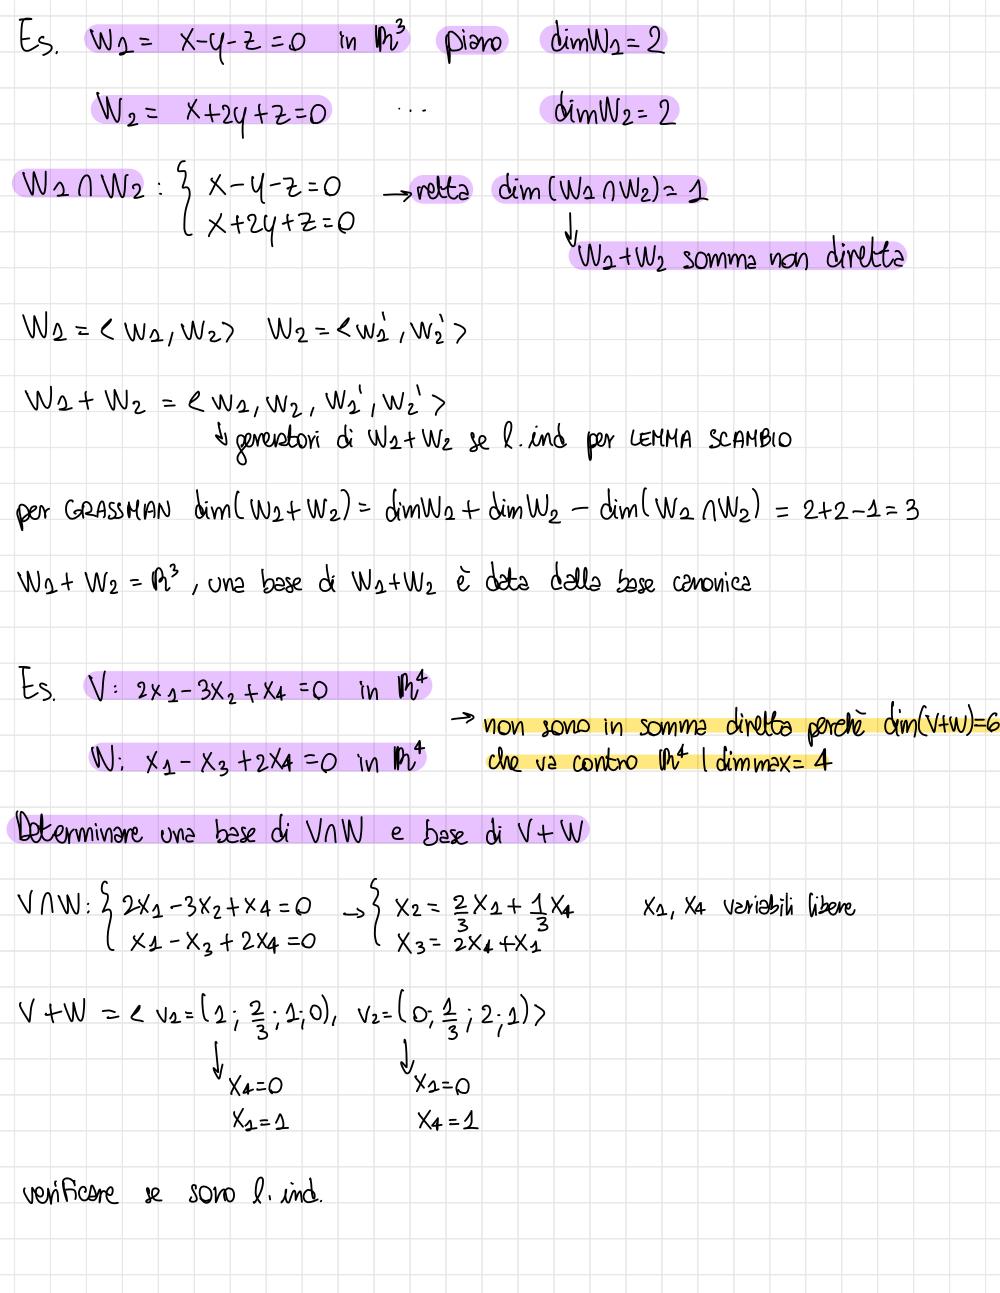 Es. W1 = x-y-z=0 in R³ piano dimW1=2
W2 = x+2y+z=0 ... dimW2=2
W1∩W2 : { x-y-z=0 → retta dim(W1∩W2)=1
x+2y+z=0
↓ W1+W2 somma non diretta
W1 = <w1, w2> W2 = <w1', w2'>
W1+W2 = <w1, w2, w1', w2'>
↓ generatori di W1+W2 se l.ind per LEMMA SCAMBIO
per GRASSMAN dim(W1+W2) = dimW1 + dimW2 - dim(W1∩W2) = 2+2-1=3
W1+W2 = R³, una base di W1+W2 è data dalla base canonica
Es. V: 2x1-3x2+x4=0 in R⁴
→ non sono in somma diretta perchè dim(V+W)=6
W: x1-x3+2x4=0 in R⁴
che va contro R⁴ | dim max= 4
Determinare una base di V∩W e base di V+W
V∩W: { 2x1-3x2+x4=0 → { x2 = 2/3 x1 + 1/3 x4 x1, x4 variabili libere
x1-x3+2x4=0 x3 = 2x4+x1
V+W = < v1=(1; 2/3; 1; 0), v2=(0; 1/3; 2; 1)>
↓ x4=0 ↓ x1=0
x1=1 x4=1
verificare se sono l.ind.